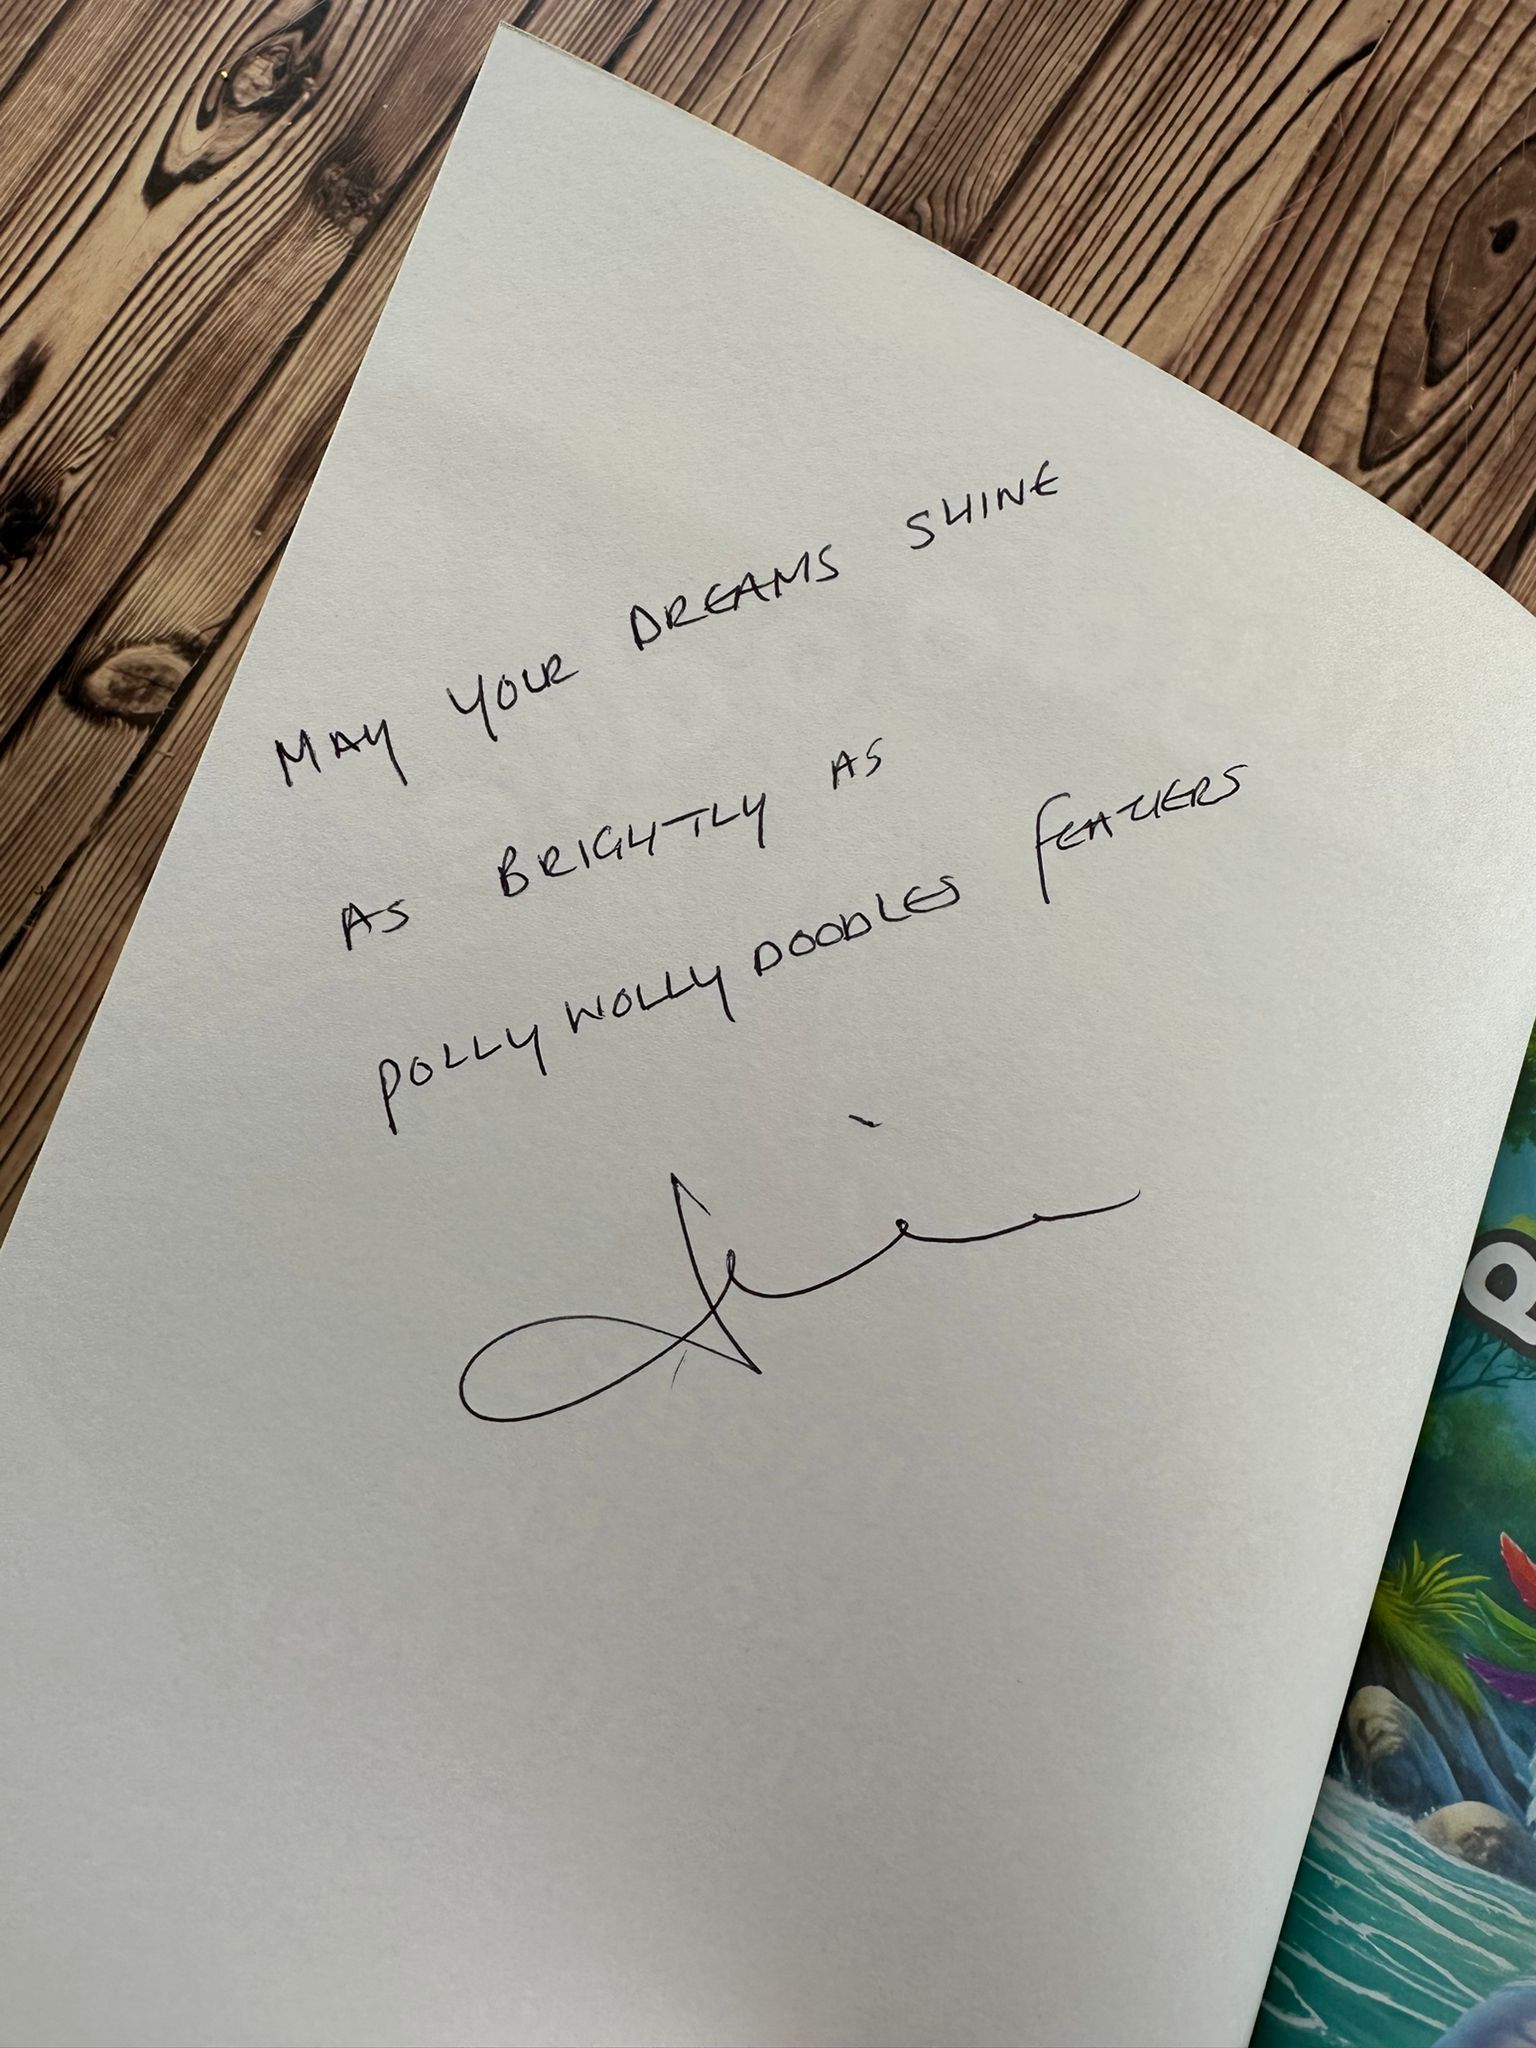 MAY YOUR DREAMS SHINE
AS BRIGHTLY AS
POLLY WOLLY DOODLES FEATHERS